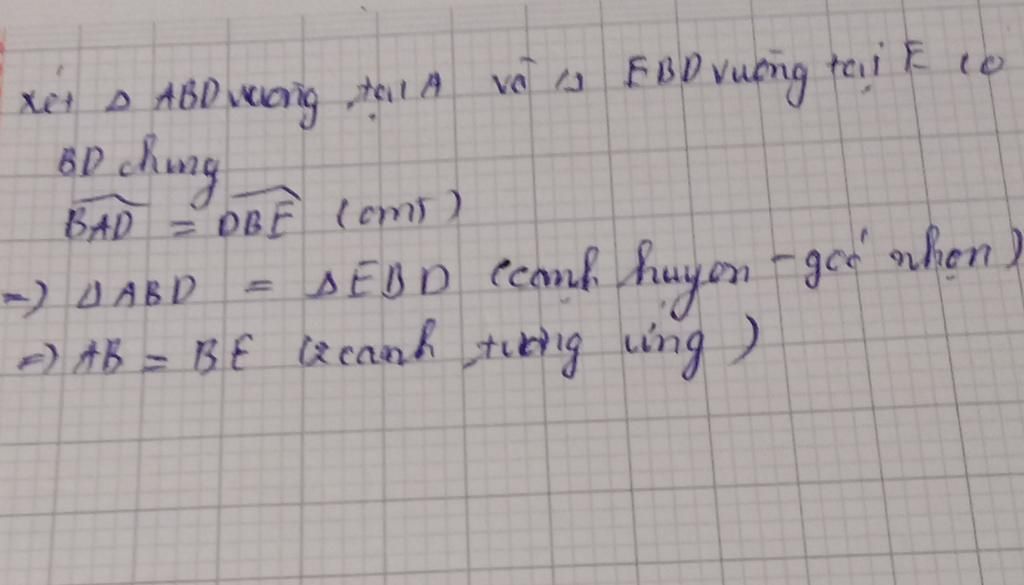 xét Δ ABD vuông tại A và Δ EBD vuông tại E có
BD chung
\widehat{BAD} = \widehat{DBE} (cmt)
=> Δ ABD = Δ EBD (cạnh huyền - góc nhọn)
=> AB = BE (2 cạnh tương ứng)